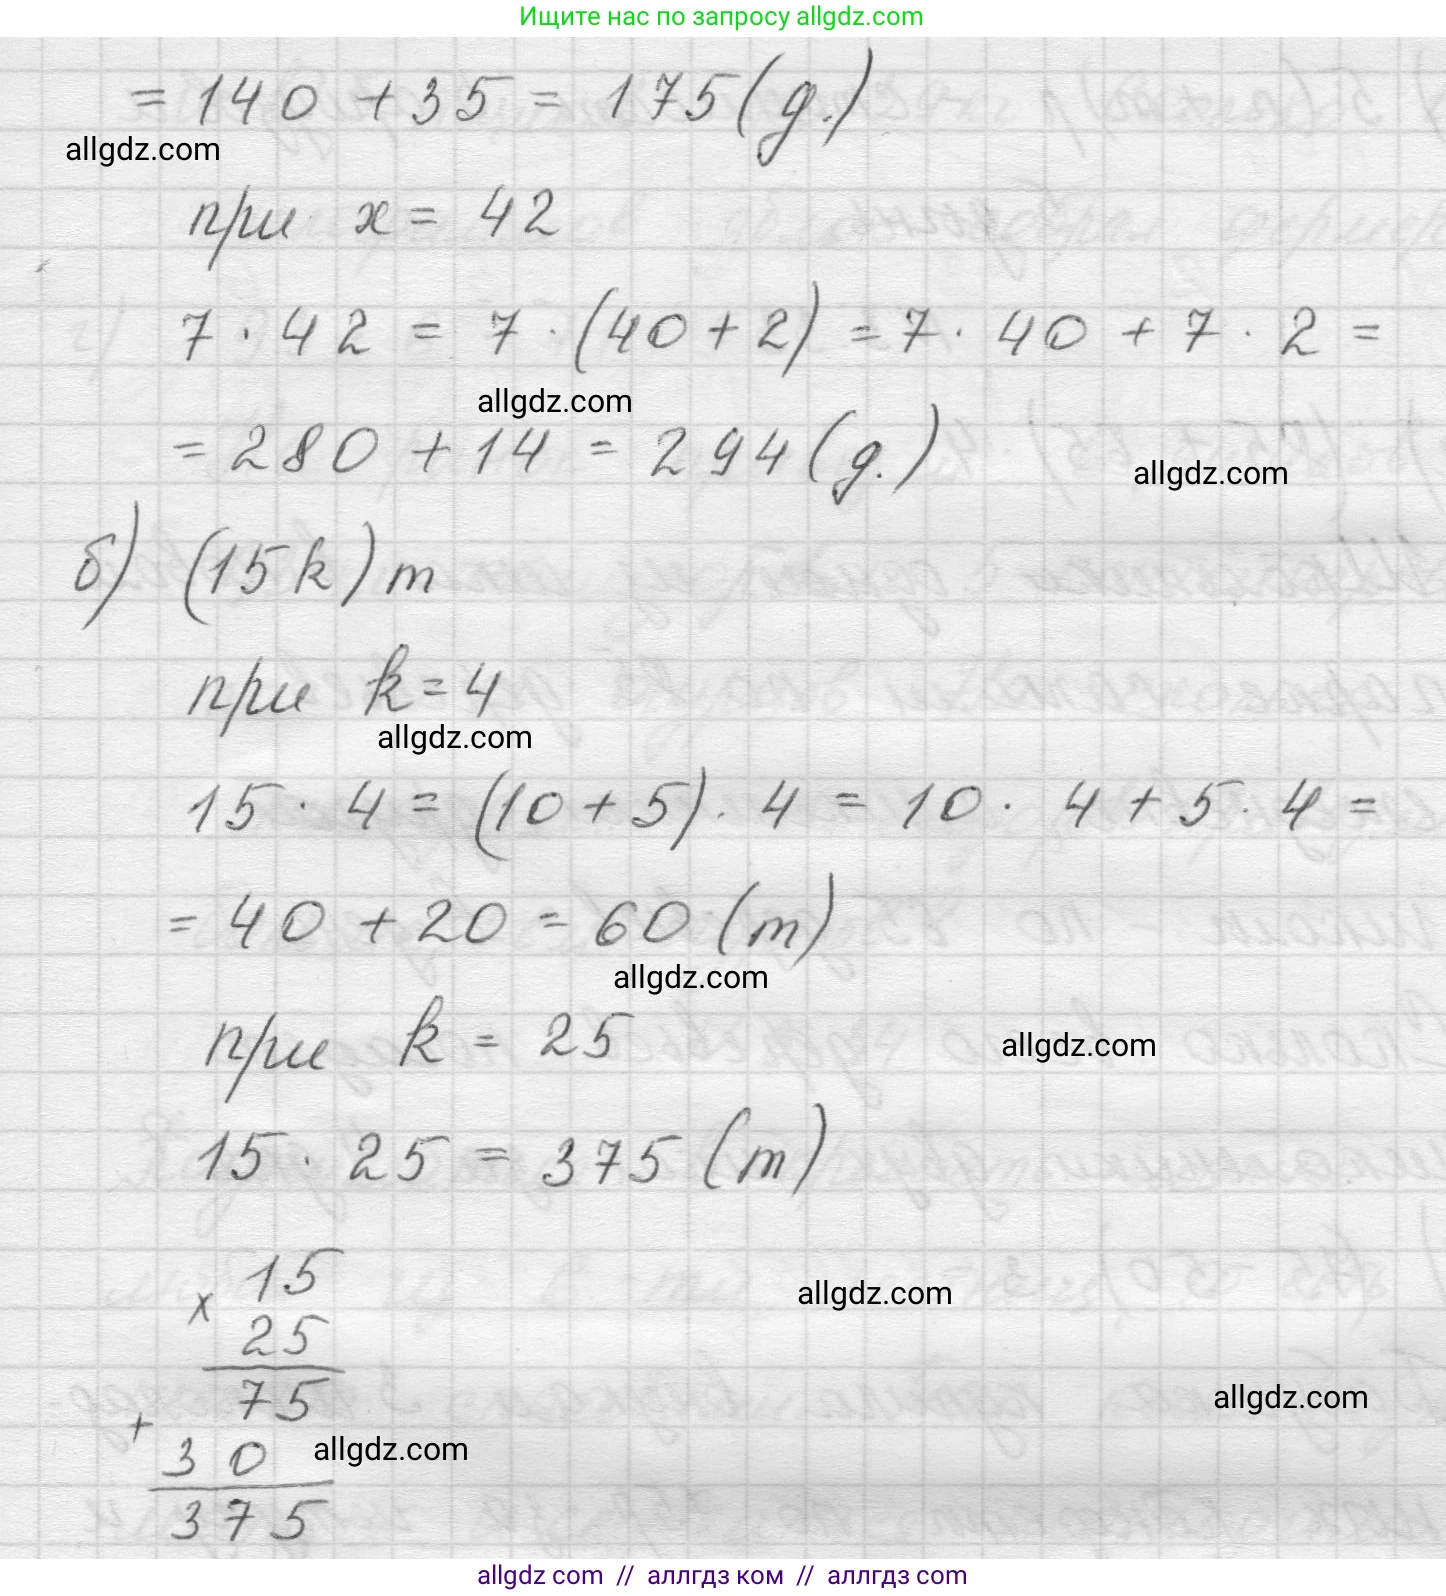 Ищите нас по запросу allgdz.com
= 140 + 35 = 175 (д.)
allgdz.com
при x = 42
7 · 42 = 7 · (40 + 2) = 7 · 40 + 7 · 2 =
allgdz.com
= 280 + 14 = 294 (д.)
allgdz.com
б) (15k) т
при k = 4
allgdz.com
15 · 4 = (10 + 5) · 4 = 10 · 4 + 5 · 4 =
= 40 + 20 = 60 (т)
allgdz.com
при k = 25
allgdz.com
15 · 25 = 375 (т)
15
x
allgdz.com
25
75
allgdz.com
+
30
allgdz.com
375
allgdz.com // аллгдз ком // аллгдз com